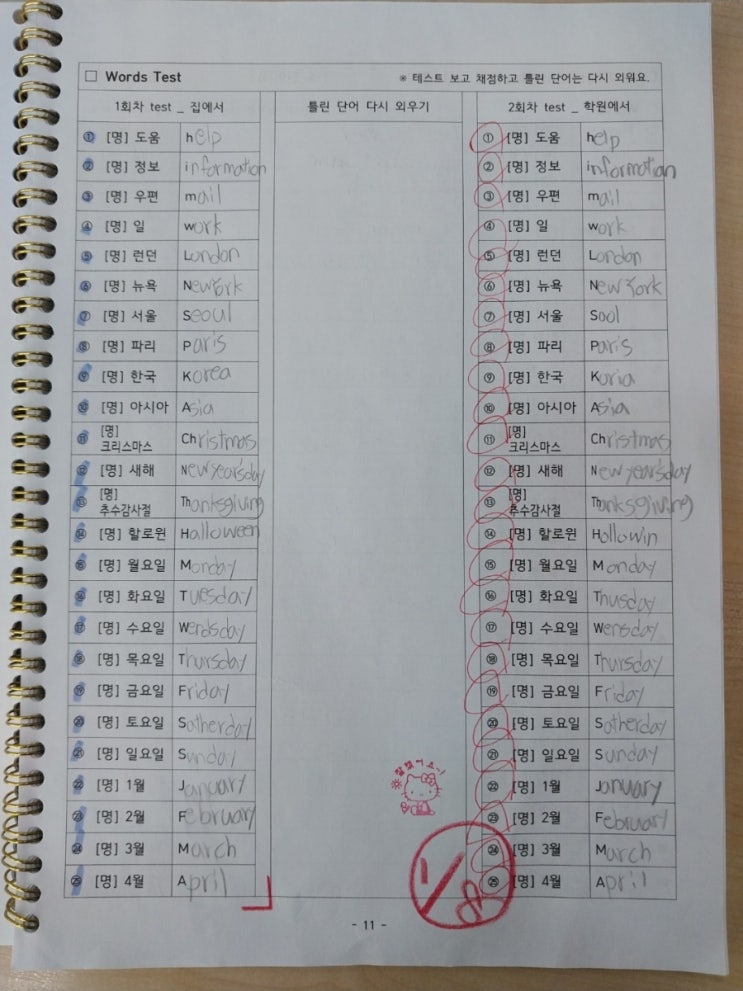 □ Words Test ※ 테스트 보고 채점하고 틀린 단어는 다시 외워요.
1회차 test _ 집에서 틀린 단어 다시 외우기 2회차 test _ 학원에서
① [명] 도움 help ① [명] 도움 help
② [명] 정보 information ② [명] 정보 information
③ [명] 우편 mail ③ [명] 우편 mail
④ [명] 일 work ④ [명] 일 work
⑤ [명] 런던 London ⑤ [명] 런던 London
⑥ [명] 뉴욕 New York ⑥ [명] 뉴욕 New York
⑦ [명] 서울 Seoul ⑦ [명] 서울 Sool
⑧ [명] 파리 Paris ⑧ [명] 파리 Paris
⑨ [명] 한국 Korea ⑨ [명] 한국 Koria
⑩ [명] 아시아 Asia ⑩ [명] 아시아 Asia
⑪ [명] 크리스마스 Christmas ⑪ [명] 크리스마스 Christmas
⑫ [명] 새해 New year's day ⑫ [명] 새해 New year's day
⑬ [명] 추수감사절 Thanksgiving ⑬ [명] 추수감사절 Thanksgiving
⑭ [명] 할로윈 Halloween ⑭ [명] 할로윈 Hollowin
⑮ [명] 월요일 Monday ⑮ [명] 월요일 Monday
⑯ [명] 화요일 Tuesday ⑯ [명] 화요일 Thusday
⑰ [명] 수요일 Werdsday ⑰ [명] 수요일 Wensday
⑱ [명] 목요일 Thursday ⑱ [명] 목요일 Thursday
⑲ [명] 금요일 Friday ⑲ [명] 금요일 Friday
⑳ [명] 토요일 Sotherday ⑳ [명] 토요일 Sotherday
㉑ [명] 일요일 Sunday ㉑ [명] 일요일 Sunday
㉒ [명] 1월 January ㉒ [명] 1월 January
㉓ [명] 2월 February ㉓ [명] 2월 February
㉔ [명] 3월 March ㉔ [명] 3월 March
㉕ [명] 4월 April ㉕ [명] 4월 April
참 잘했어요~!
1/8
- 11 -